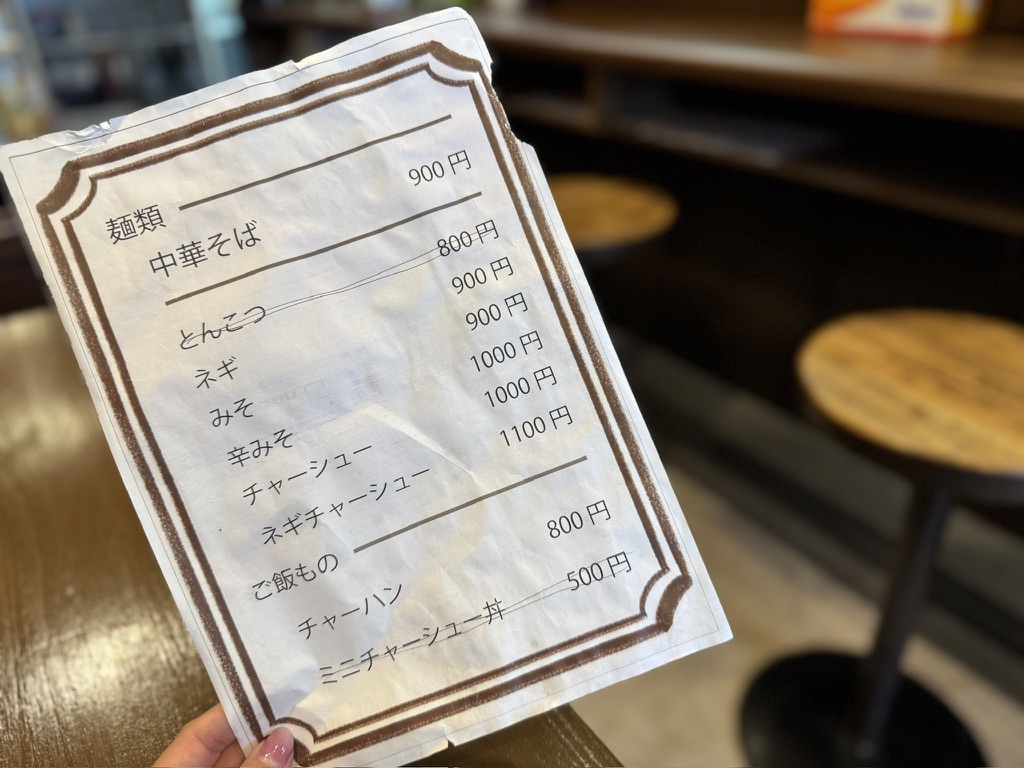 麺類
中華そば 900円
とんこつ 800円
ネギ 900円
みそ 900円
辛みそ 1000円
チャーシュー 1000円
ネギチャーシュー 1100円
ご飯もの
チャーハン 800円
ミニチャーシュー丼 500円